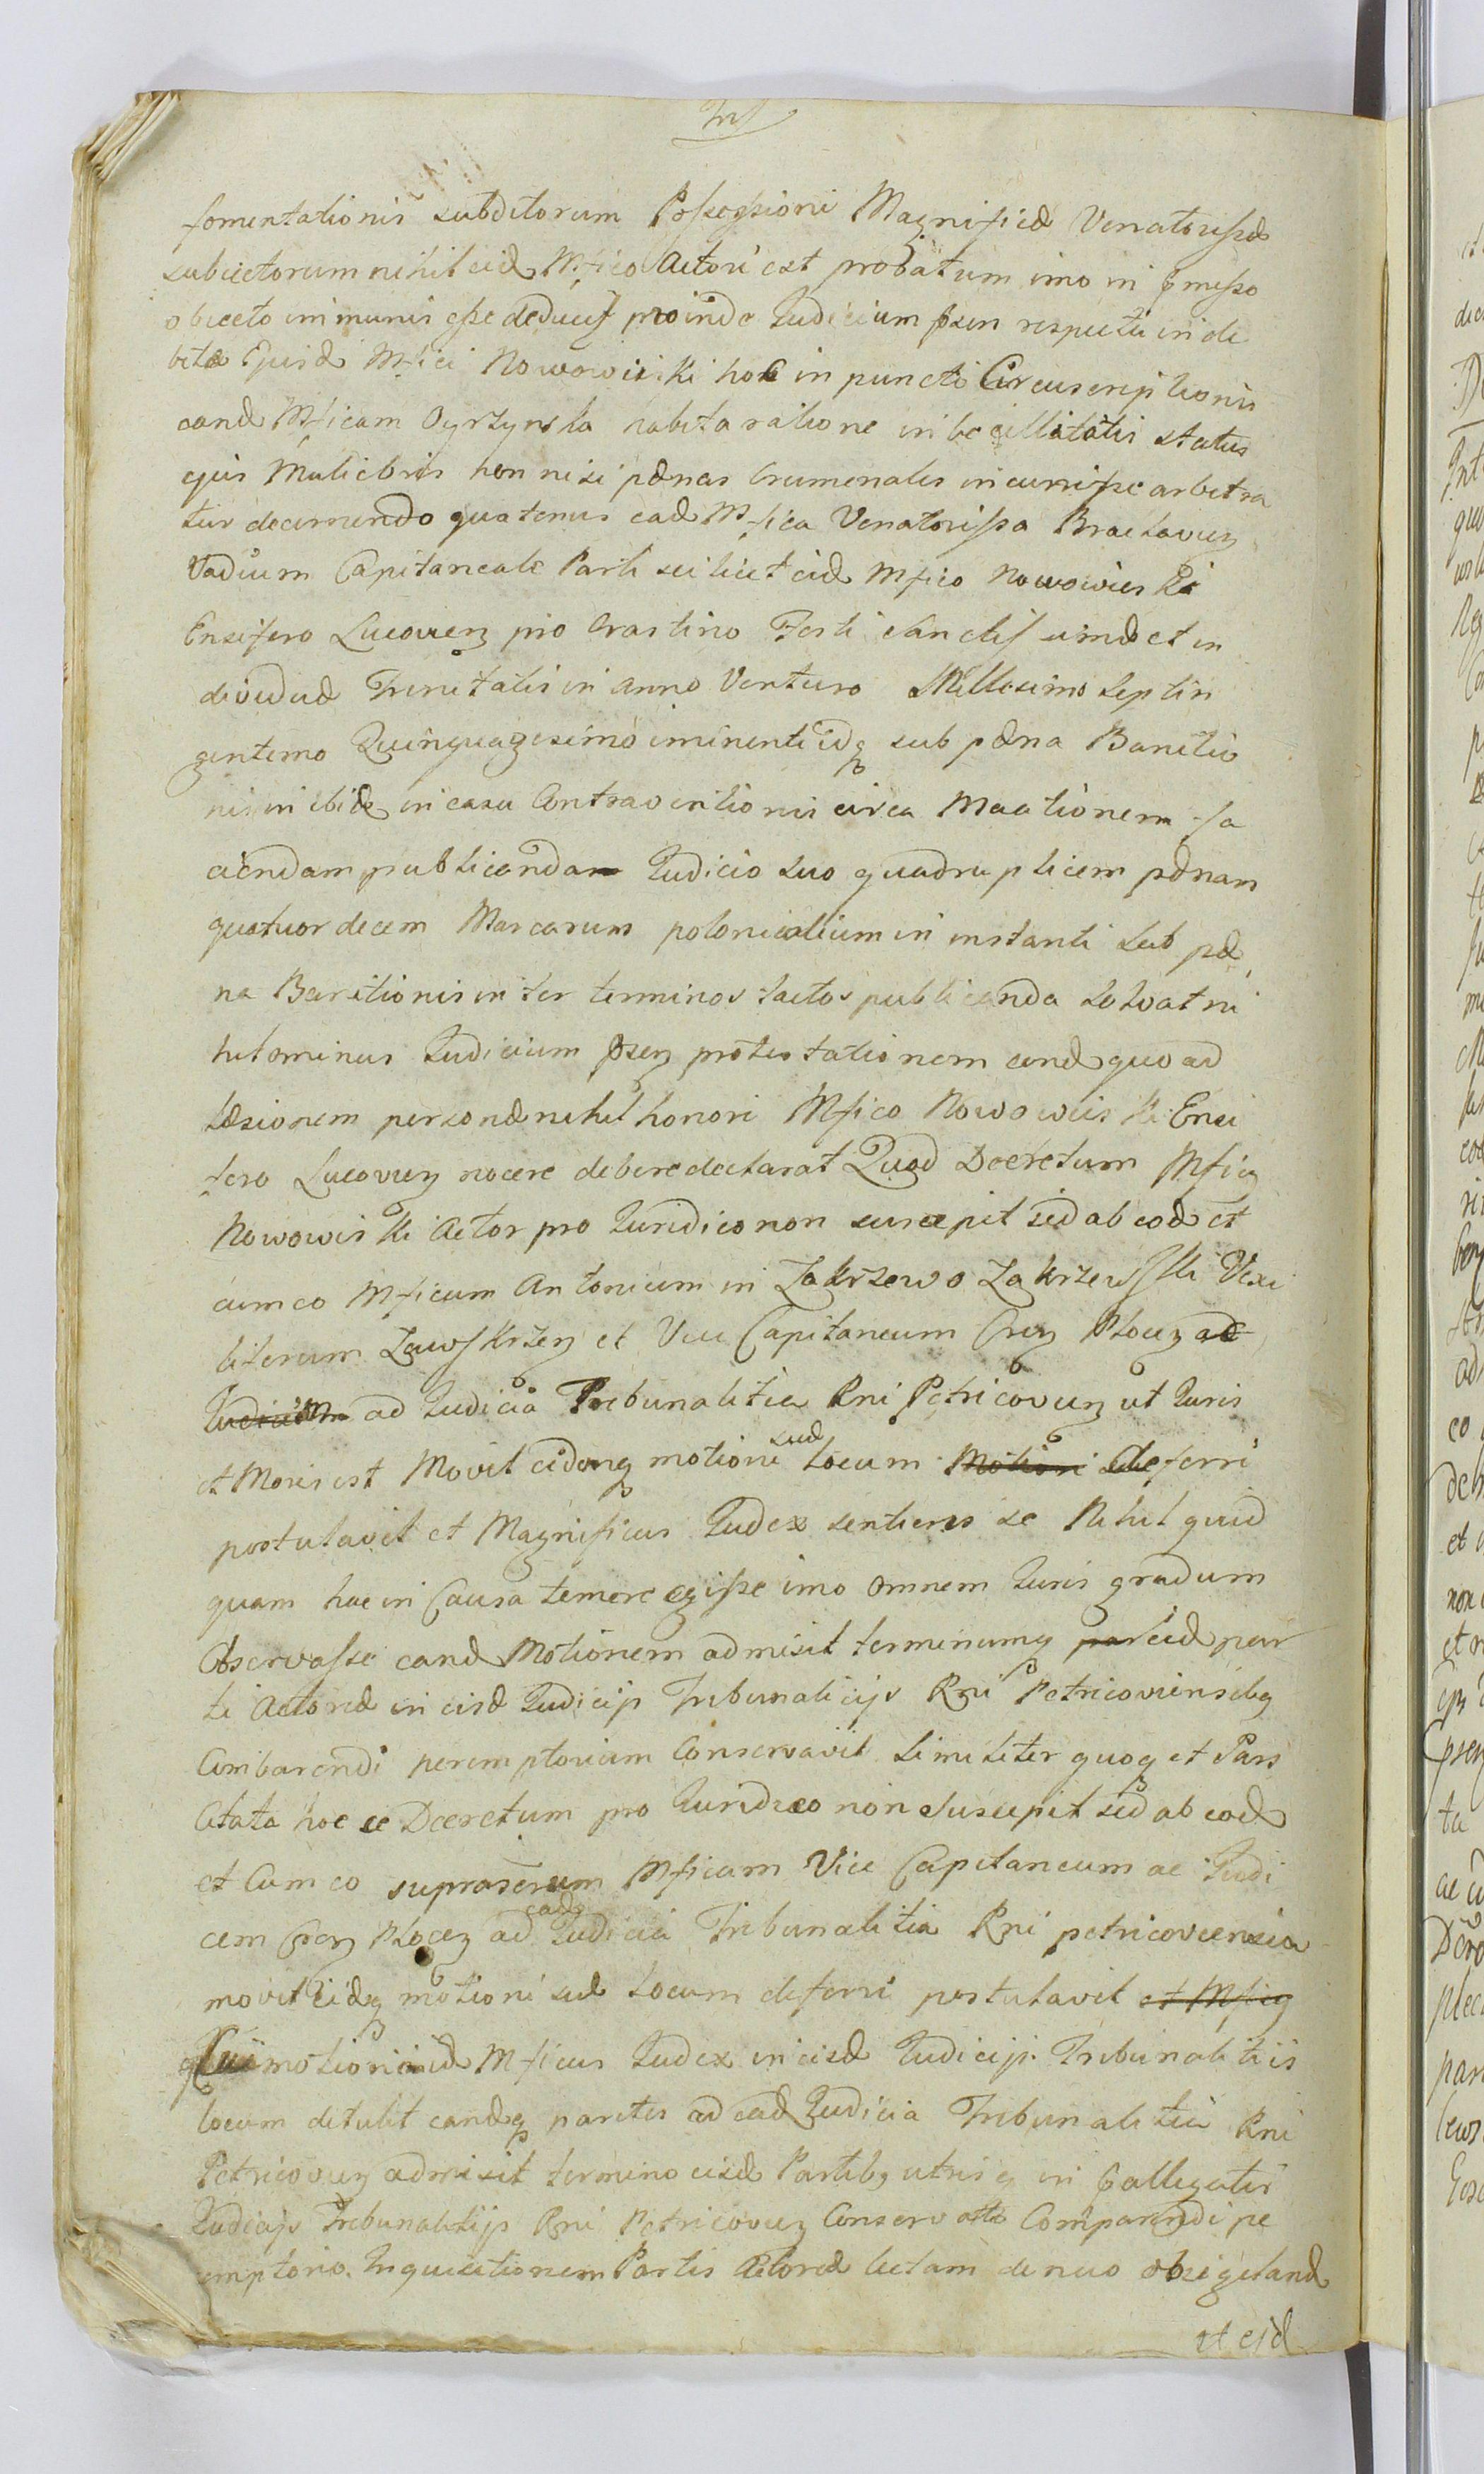 fomentationis subditorum Possessioni Magnificæ Venatorissæ
subiectorum nihil eid Mfico Actori est probatum imo in pmisso
obiecto immunis esse deducit proinde Judicium psen respectu inde
bitæ Ejusd Mfici Nowowieiski hoc in puncto Circumscriptionis
eand Mficam Oyrzynska habita ratione imbecillitatis status
ejus Muliebris non nisi pænas Crumenales incurrisse arbitra
tur decernendo quatenus ead Mfica Venatorissa Braclavien
Vadium Capitaneale Parti scilicet eid Mfico Nowowieski
Ensifero Lucovien pro Crastino Festi Sanctissimæ et in
dividuæ Trinitatis in Anno Venturo Millesimo Septin
gentesimo Quinquagesimo iminenti idq sub pæna Banitio
nis inibide in casu Contraventionis circa Mactionem fa
ciendam publicandam Judicio suo quadruplicem pænam
quatuordecem Marcarum polonicalium in instanti sub pæ
na Banitionis inter terminos tactos publicanda solvat ni
hilominus Judicium psen protestationem eand quoad
læsionem personæ nihil honori Mfico Nowowieiski Ensi
fero Lucovien nocere debere declarat Quod Decretum Mficq
Nowowieiski Actor pro Juridico non suscepit sed ab eod et
cum eo Mficum Antonium in Zakrzewo Zakrzewski Vexi
liferum Zawskrzen et Vice Capitaneum Cren Plocen ac
Judicium ad Judicia Tribunalitia Rni Petricovien ut Juris
et Moris est Movit eidemq motioni suæ locum Motioni deferri
postulavit et Magnificus Judex sentiens se Nihil quid
quam hac in Causa temere egisse imo omnem Juris gradum
Observasse eand Motionem admisit terminumq par eid par
ti Actoreæ in eisd Judicijs Tribunalicijs Rgni Petricoviensibq
Combarendi peremptorium Conservavit Similiter quoq et Pars
Citata hoc ce Decretum pro Juridico non Suscepit sed ab eod
et Cum eo suprascrum Mficum Vice Capitaneum ac Judi
cem Cren Plocen ad ead Judicia Tribunalitia Rni petricoviensia
movit eidq motioni suæ locum deferri postulavit et Mficq
Cui motioni eid Mficus Judex in eisd Judicijs Tribunalitiis
locum detulit eandq partes ad ead Judicia Tribunalitia Rni
Petricovien admisit termino eisd Partibq utrisq in pallegatis
Judicijs Tribunalitijs Rni Petricovien Conservato Comparendi pe
remptorio. Inquisitionem Partis Actoreæ lectam denuo obsigiland
et eid